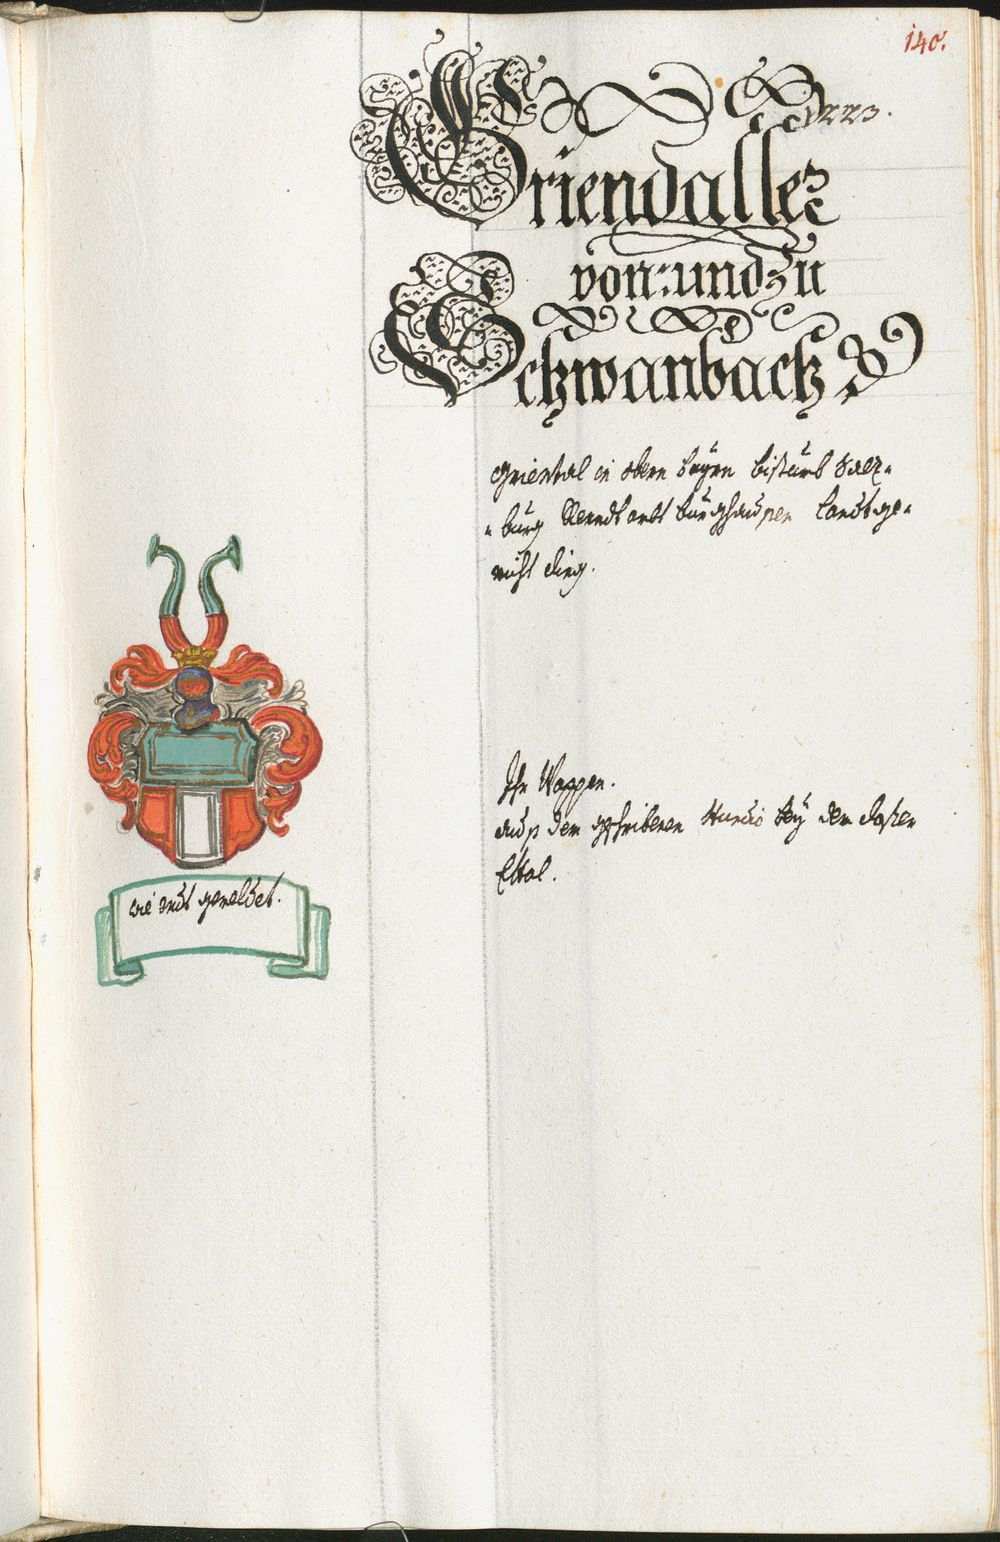 140.
1223.
Griendaller
von: und zu
Schwanbach
Griental in obern bayrn bistumb Salz-
-burg Renndtambt burghausen Landtge-
richt
Ihr Wappen.
auß dem geschribenen Hundio bey dem closter
Ettal.
wie erst gemeldet.